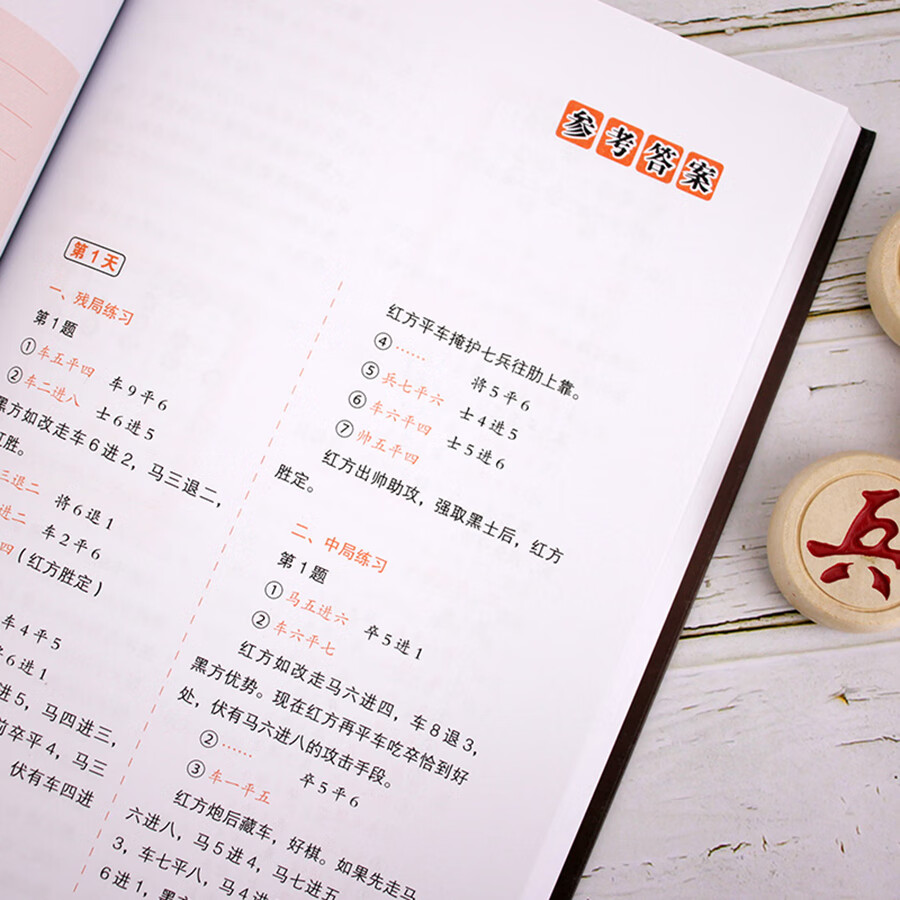 参考答案
第1天
一、残局练习
第1题
①车五平四 车9平6
②车二进八 士6进5
黑方如改走车6进2，马三退二，
红胜。
三退二 将6退1
进二 车2平6
四（红方胜定）
车4平5
6进1
进5，马四进三，
前卒平4，马三
伏有车四进
红方平车掩护七兵往肋上靠。
④……
⑤兵七平六 将5平6
⑥车六平四 士4进5
⑦帅五平四 士5进6
红方出帅助攻，强取黑士后，红方
胜定。
二、中局练习
第1题
①马五进六 卒5进1
②车六平七
红方如改走马六进四，车8退3，
黑方优势。现在红方再平车吃卒恰到好
处，伏有马六进八的攻击手段。
②…… 卒5平6
③车一平五
红方炮后藏车，好棋。如果先走马
六进八，马5进4，马七进五
3，车七平八，马4进
6进1，黑
兵